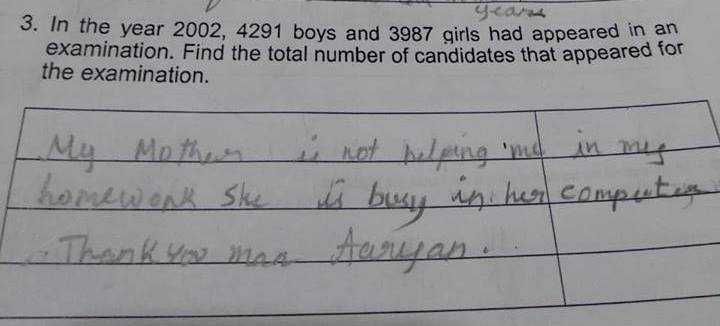 years
3. In the year 2002, 4291 boys and 3987 girls had appeared in an
examination. Find the total number of candidates that appeared for
the examination.
My Mother is not helping me in my
homework She is busy in her computer
Thank you maa Aaryan.